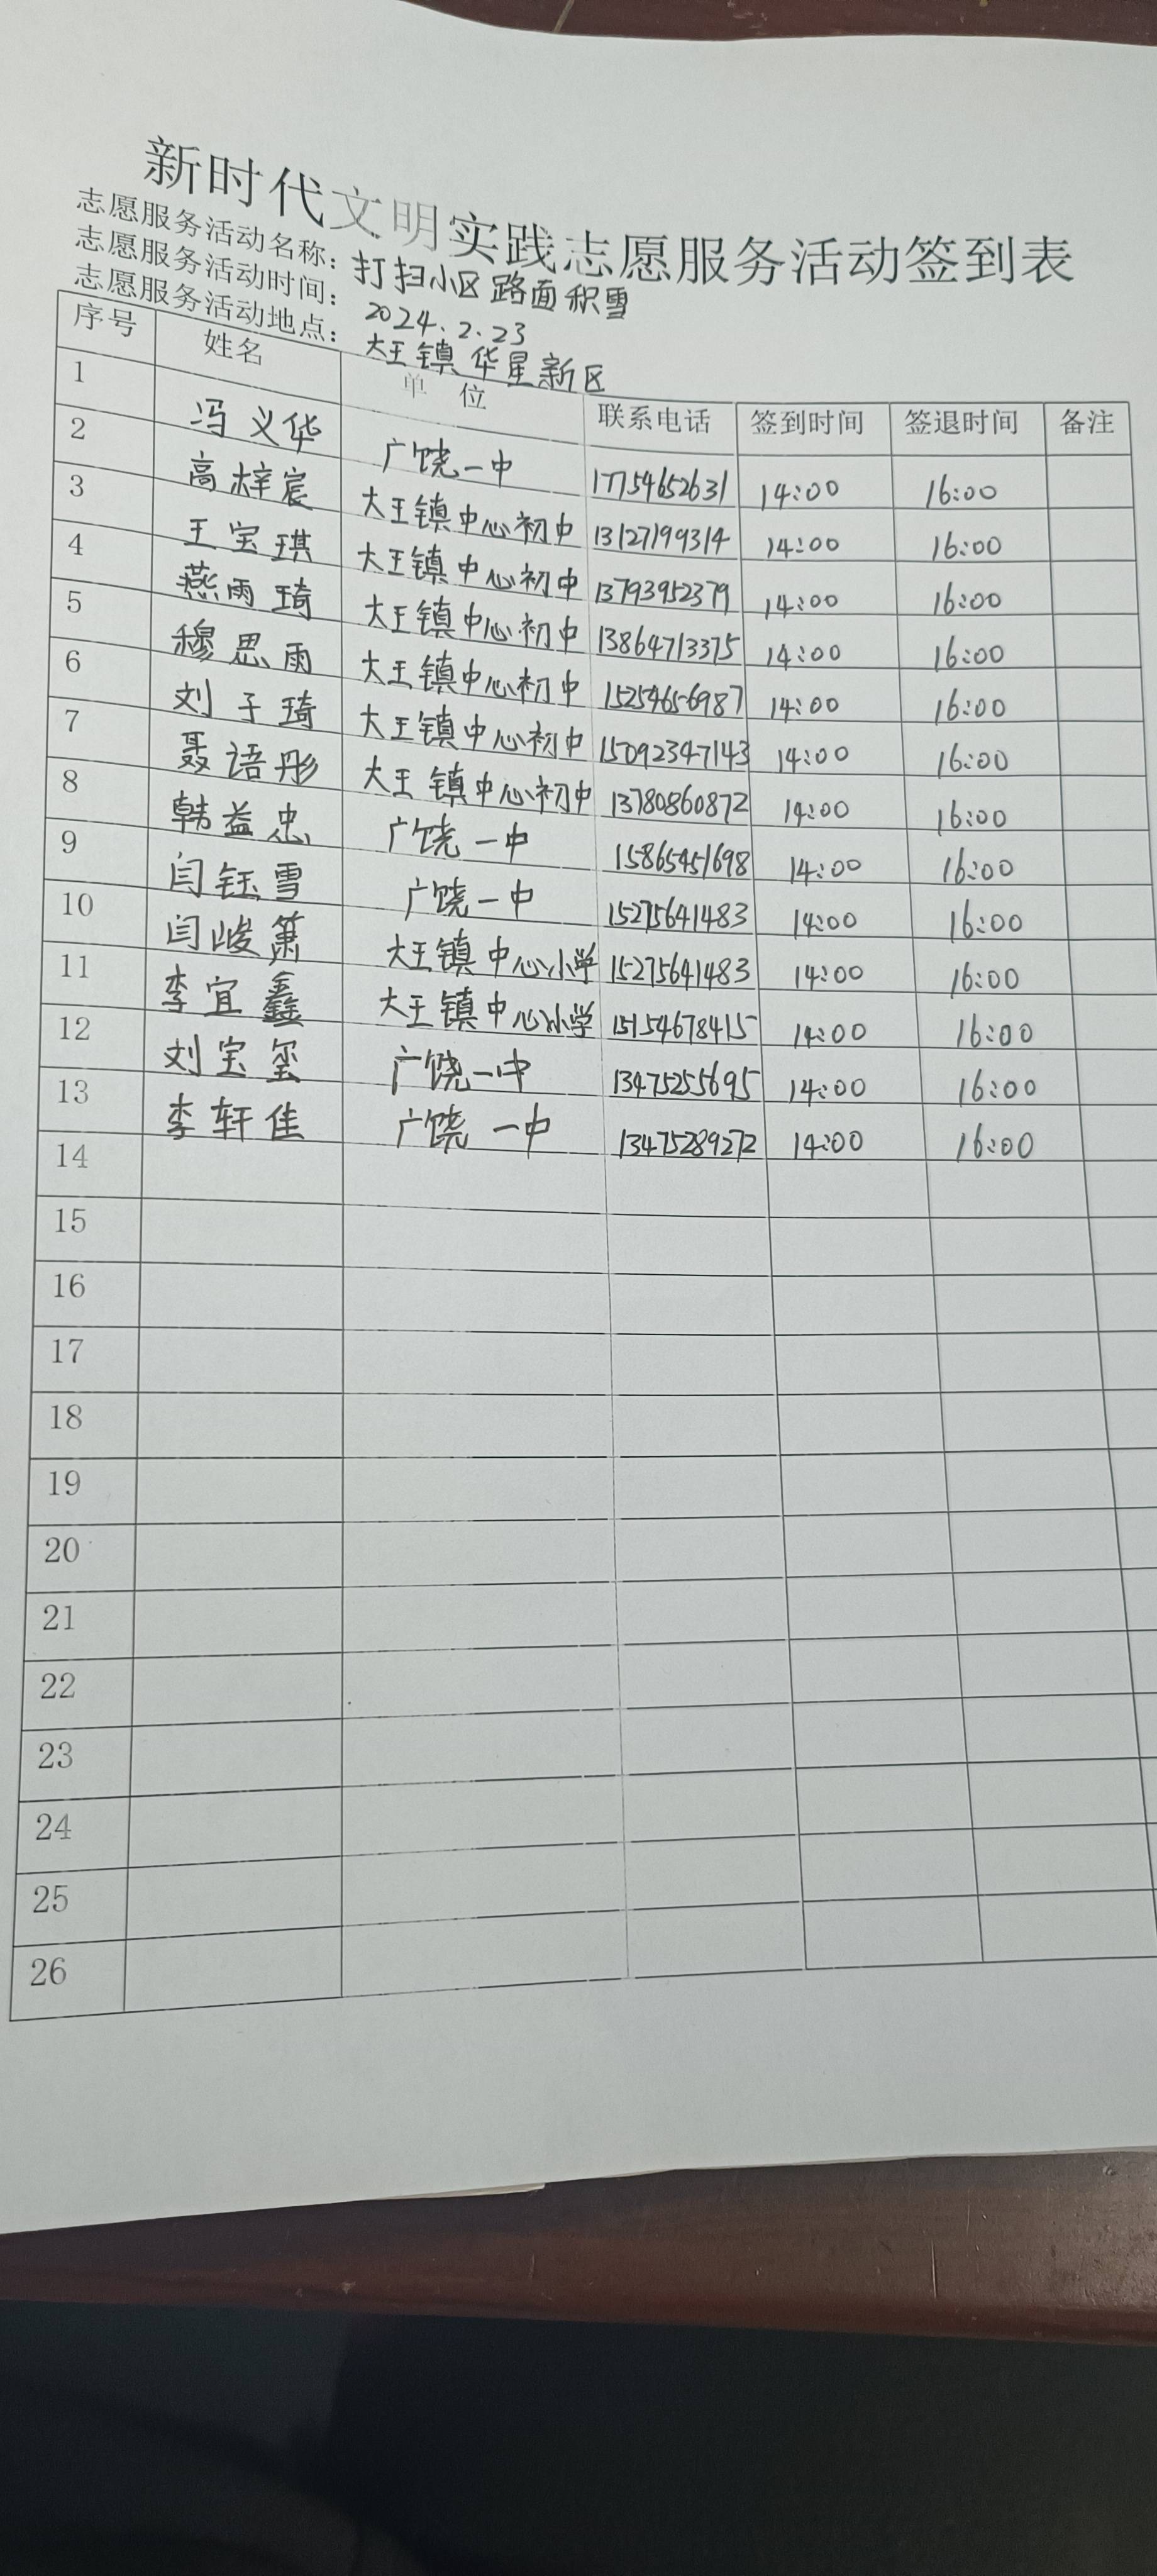 新时代文明实践志愿服务活动签到表
志愿服务活动名称：打扫小区路面积雪
志愿服务活动时间：2024.2.23
志愿服务活动地点：大王镇华星新区
序号 姓名 单位 联系电话 签到时间 签退时间 备注
1 冯义华 广饶一中 17754652631 14:00 16:00
2 高梓宸 大王镇中心初中 13127199314 14:00 16:00
3 王宝琪 大王镇中心初中 13793952379 14:00 16:00
4 燕雨琦 大王镇中心初中 13864713375 14:00 16:00
5 穆思雨 大王镇中心初中 15254656987 14:00 16:00
6 刘子琦 大王镇中心初中 15092347143 14:00 16:00
7 聂语彤 大王镇中心初中 13780860872 14:00 16:00
8 韩益忠 广饶一中 15865451698 14:00 16:00
9 闫钰雪 广饶一中 15275641483 14:00 16:00
10 闫峻箫 大王镇中心小学 15275641483 14:00 16:00
11 李宜鑫 大王镇中心小学 15154678415 14:00 16:00
12 刘宝玺 广饶一中 13475255695 14:00 16:00
13 李轩佳 广饶一中 13475289272 14:00 16:00
14
15
16
17
18
19
20
21
22
23
24
25
26